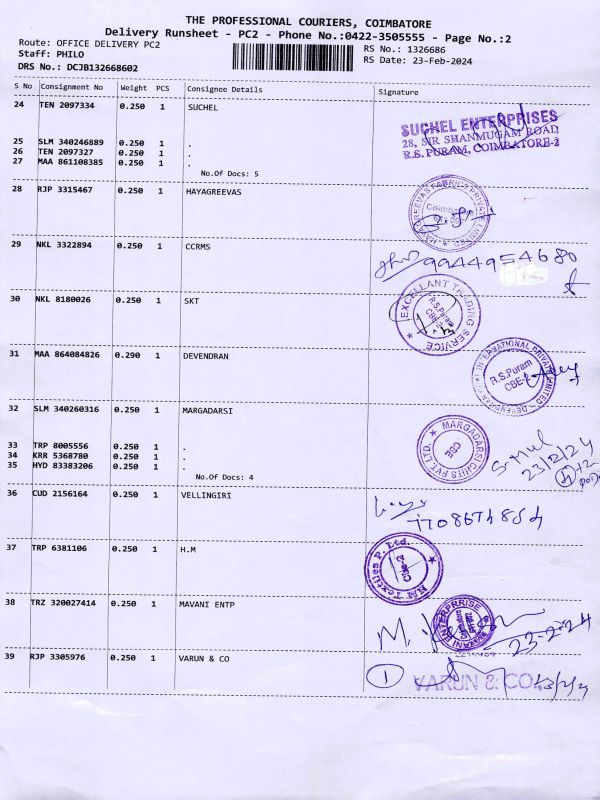 THE PROFESSIONAL COURIERS, COIMBATORE
Delivery Runsheet - PC2 - Phone No.:0422-3505555 - Page No.:2
Route: OFFICE DELIVERY PC2
Staff: PHILO
DRS No.: DCJB132668602
RS No.: 1326686
RS Date: 23-Feb-2024
S No Consignment No Weight PCS Consignee Details Signature
24 TEN 2097334 0.250 1 SUCHEL
SUCHEL ENTERPRISES
28, SIR SHANMUGAM ROAD
R.S. PURAM, COIMBATORE-2
25 SLM 340246889 0.250 1 .
26 TEN 2097327 0.250 1 .
27 MAA 861108385 0.250 1 .
No.Of Docs: 5
28 RJP 3315467 0.250 1 HAYAGREEVAS
29 NKL 3322894 0.250 1 CCRMS
9944954680
30 NKL 8180026 0.250 1 SKT
EXCELLANT TRADING SERVICE
R.S.Puram
CBE-2
31 MAA 864084826 0.290 1 DEVENDRAN
INTERNATIONAL PRIVATE LIMITED
R.S.Puram
CBE-2
32 SLM 340260316 0.250 1 MARGADARSI
MARGADARSI CHITS PVT. LTD.
CBE
23/2/24
33 TRP 8005556 0.250 1 .
34 KRR 5368780 0.250 1 .
35 HYD 83383206 0.250 1 .
No.Of Docs: 4
36 CUD 2156164 0.250 1 VELLINGIRI
37 TRP 6381106 0.250 1 H.M
H.M Textiles P. Ltd.
Cbe-2
38 TRZ 320027414 0.250 1 MAVANI ENTP
MAVANI ENTERPRISE
23-2-24
39 RJP 3305976 0.250 1 VARUN & CO
1
VARUN & CO.